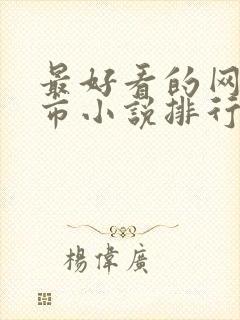 最好看的网
市小説排行
楊偉廣